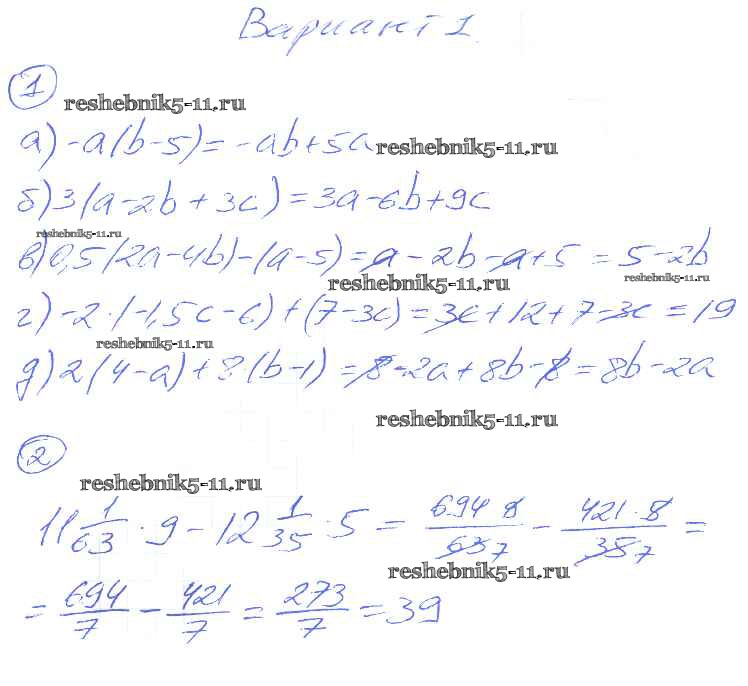 Вариант 1
1
reshebnik5-11.ru
а) -a(b-5)=-ab+5a
reshebnik5-11.ru
б) 3(a-2b+3c)=3a-6b+9c
reshebnik5-11.ru
в) 0,5(2a-4b)-(a-5)=a-2b-a+5=5-2b
reshebnik5-11.ru
reshebnik5-11.ru
г) -2·(-1,5c-6)+(7-3c)=3c+12+7-3c=19
reshebnik5-11.ru
д) 2(4-a)+8(b-1)=8-2a+8b-8=8b-2a
reshebnik5-11.ru
2
reshebnik5-11.ru
11 1/63 · 9 - 12 1/35 · 5 = 694·9/63 7 - 421·5/35 7 =
reshebnik5-11.ru
= 694/7 - 421/7 = 273/7 = 39